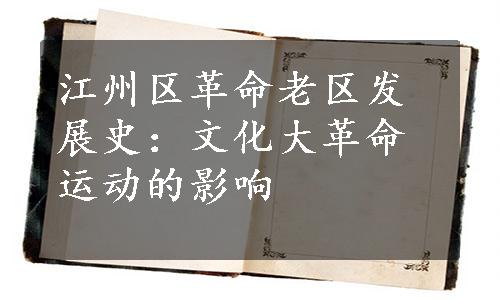 江州区革命老区发
展史：文化大革命
运动的影响